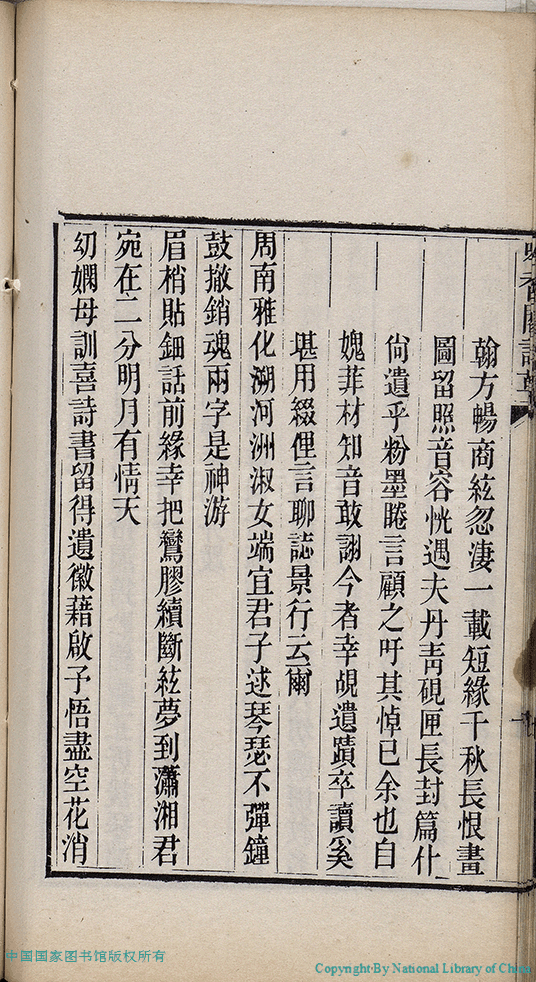 香閣詩草
翰方暢商絃忽淒一載短緣千秋長恨畫
圖留照音容恍遇夫丹靑硯匣長封篇什
尙遺乎粉墨睠言顧之吁其悼已余也自
媿菲材知音敢謝今者幸覘遺蹟卒讀奚
堪用綴俚言聊誌景行云爾
周南雅化溯河洲淑女端宜君子逑琴瑟不彈鐘
鼓撤銷魂兩字是神游
眉梢貼鈿話前緣幸把鸞膠續斷絃夢到瀟湘君
宛在二分明月有情天
幼嫻母訓喜詩書留得遺徽藉啟予悟盡空花消
中国国家图书馆版权所有
Copyright By National Library of China